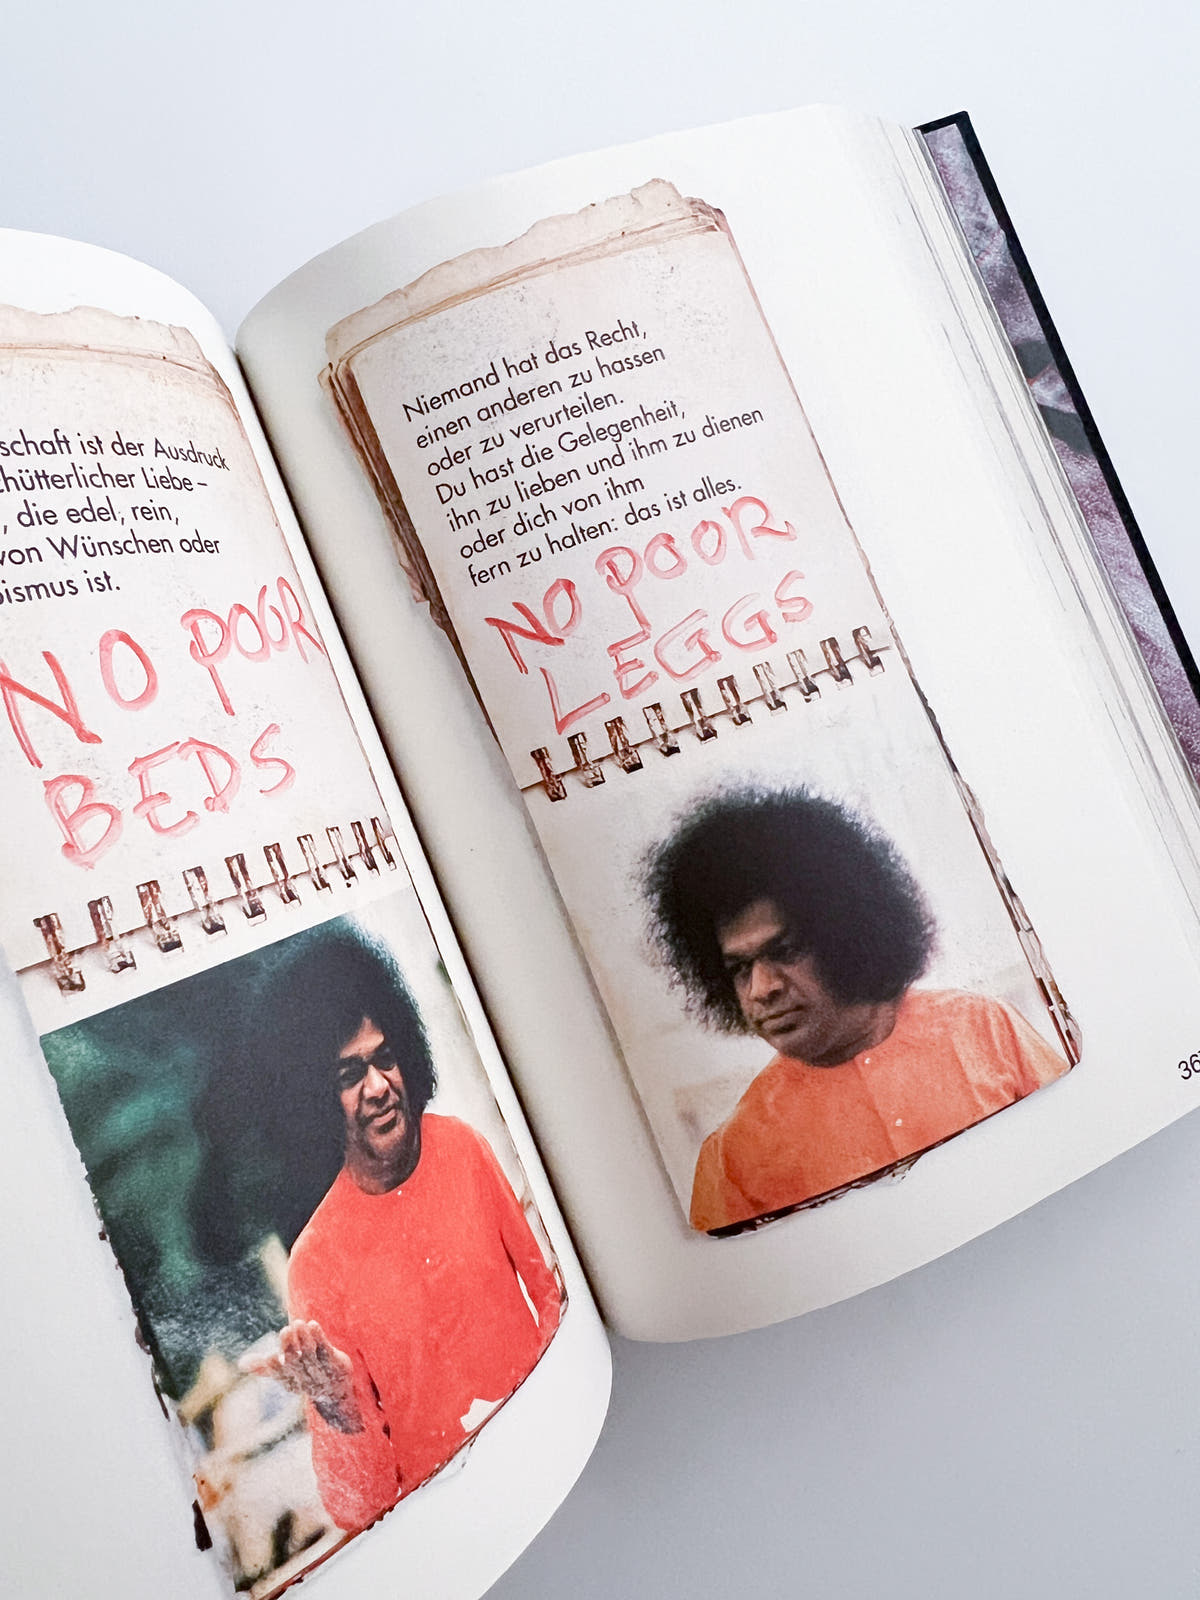 schaft ist der Ausdruck
hütterlicher Liebe –
, die edel, rein,
von Wünschen oder
ismus ist.
NO POOR
BEDS
Niemand hat das Recht,
einen anderen zu hassen
oder zu verurteilen.
Du hast die Gelegenheit,
ihn zu lieben und ihm zu dienen
oder dich von ihm
fern zu halten: das ist alles.
NO POOR
LEGGS
36